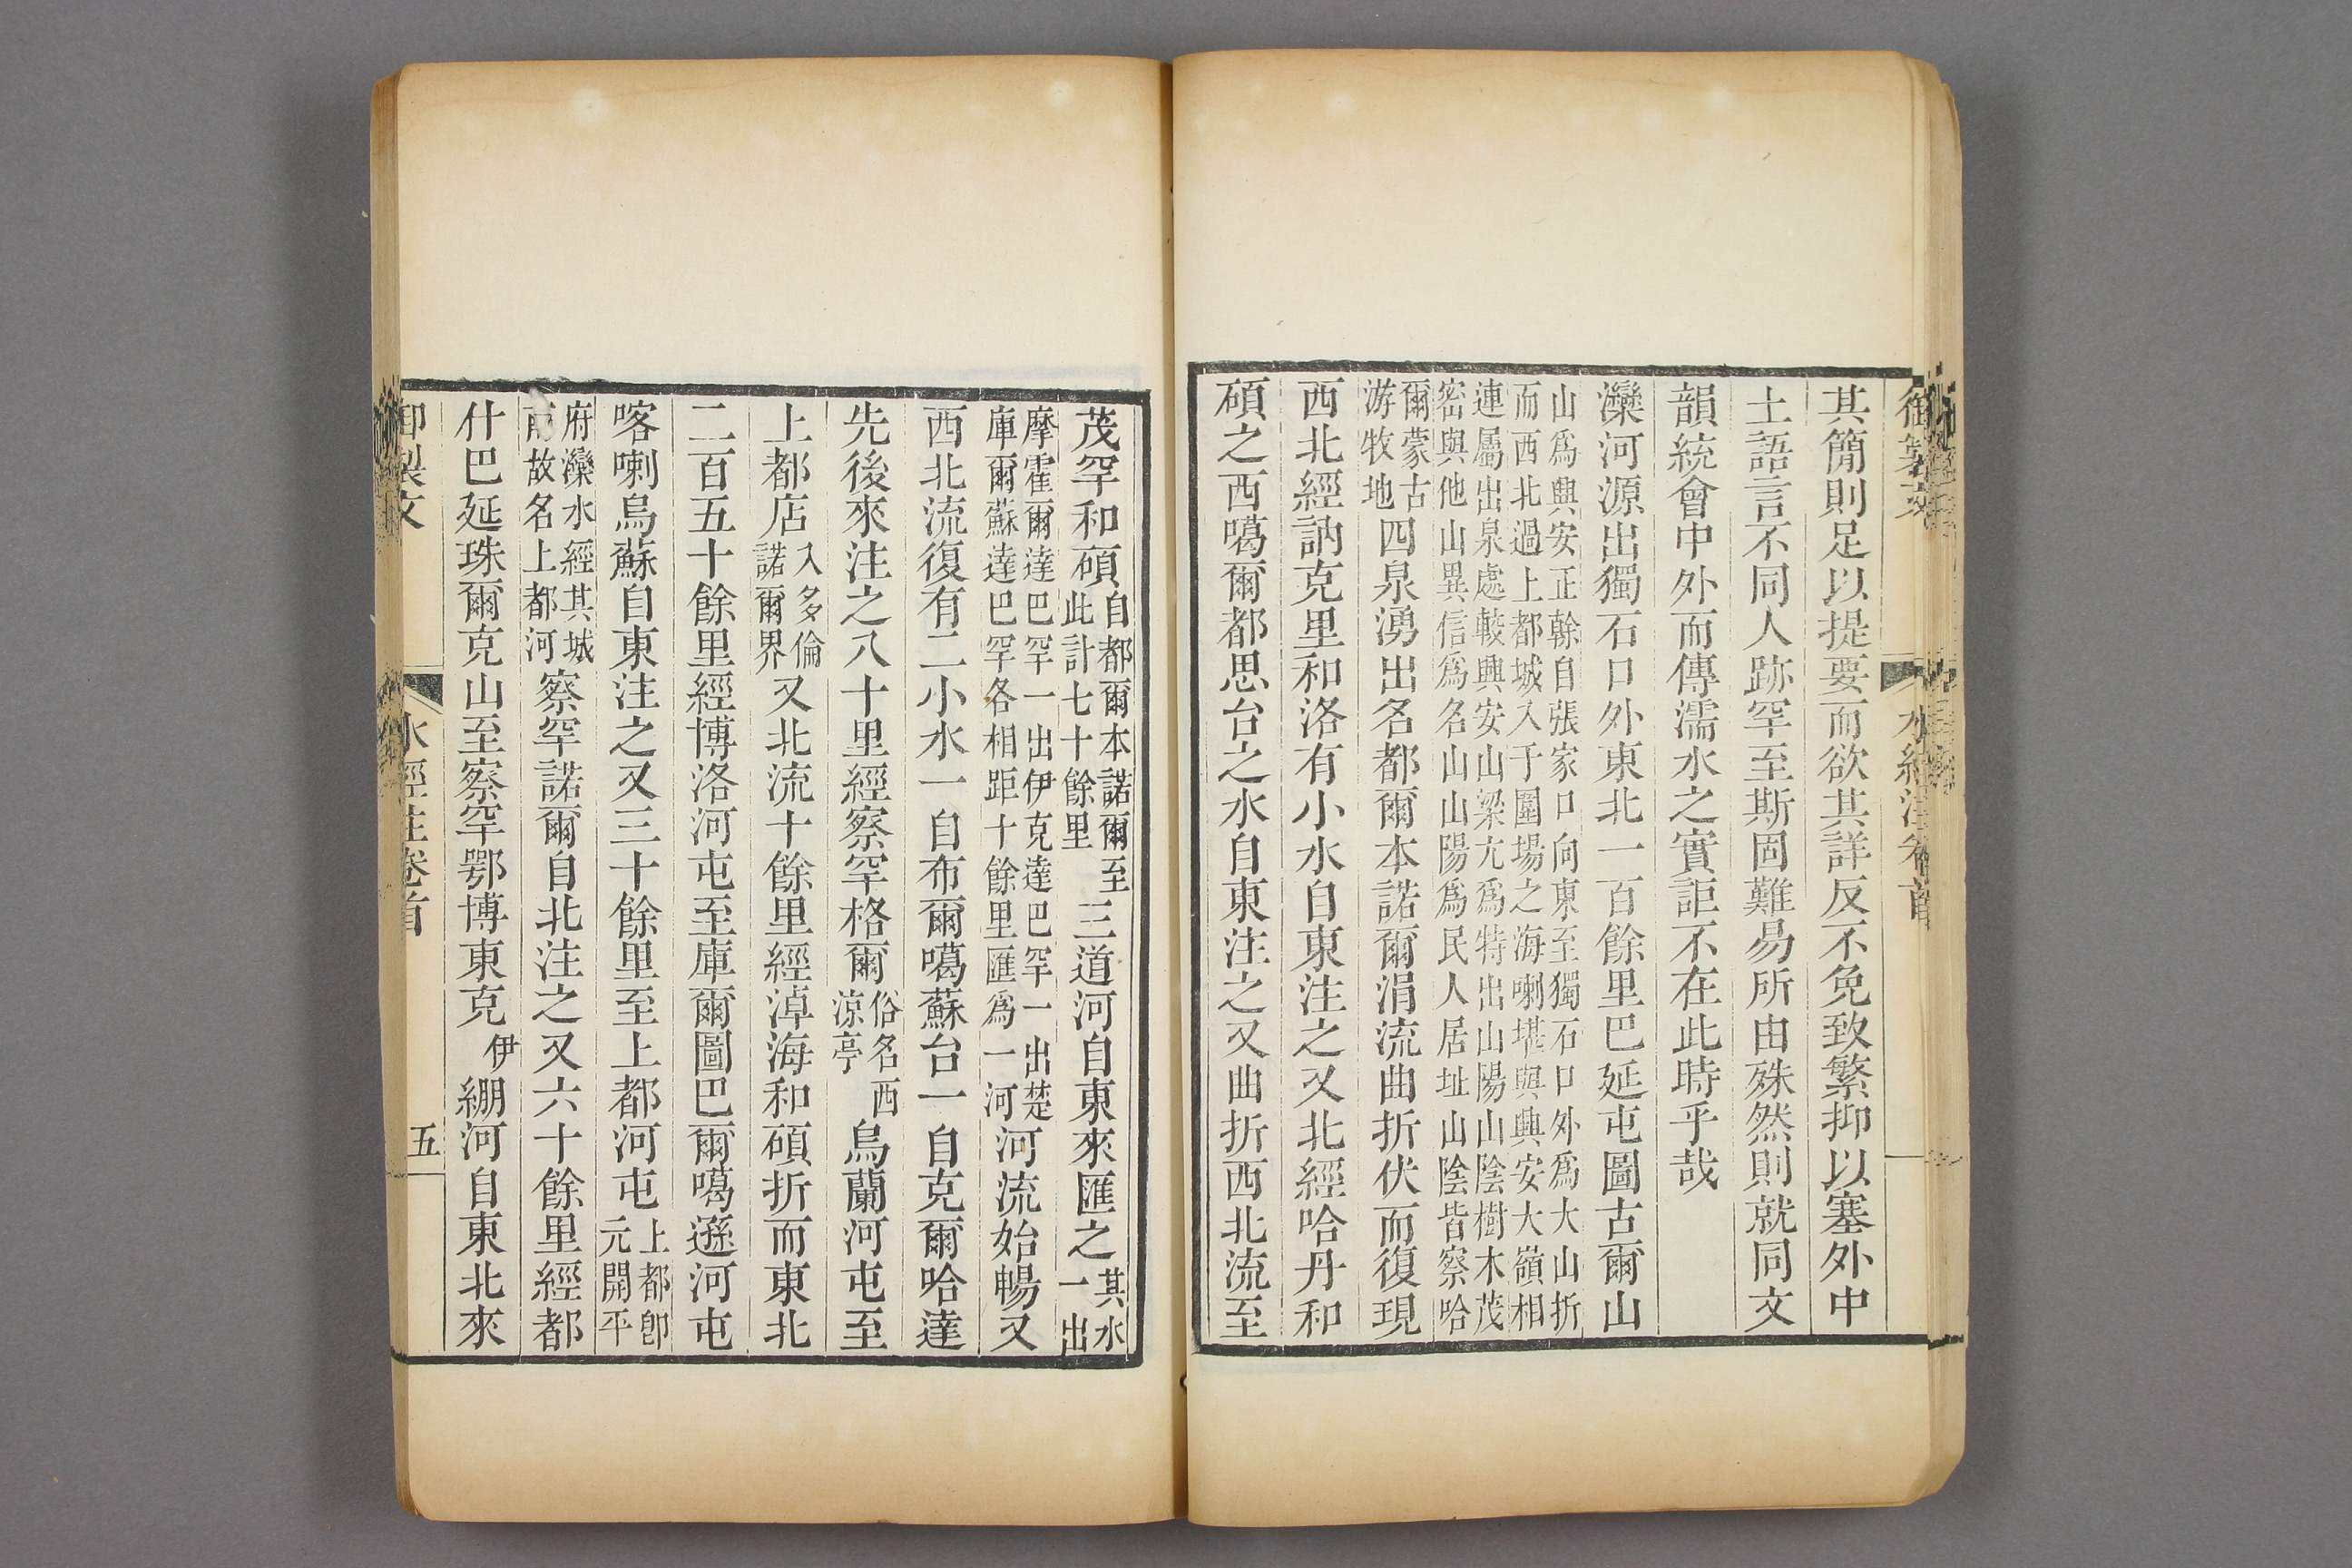 御製文 水經注卷首
其簡則足以提要而欲其詳反不免致繁抑以塞外中
土語言不同人跡罕至斯固難易所由殊然則就同文
韻統會中外而傳濡水之實詎不在此時乎哉
灤河源出獨石口外東北一百餘里巴延屯圖古爾山
山爲興安正榦自張家口向東至獨石口外爲大山折
而西北過上都城入于圍場之海喇堪與興安大嶺相
連屬出泉處較興安山梁尤爲特出山陽山陰樹木茂
密與他山異信爲名山山陽爲民人居址山陰皆察哈
爾蒙古游牧地四泉湧出名都爾本諾爾涓流曲折伏而復現
西北經訥克里和洛有小水自東注之又北經哈丹和
碩之西噶爾都思台之水自東注之又曲折西北流至
茂罕和碩自都爾本諾爾至此計七十餘里三道河自東來匯之其水一出
摩霍爾達巴罕一出伊克達巴罕一出楚庫爾蘇達巴罕各相距十餘里匯爲一河河流始暢又
西北流復有二小水一自布爾噶蘇台一自克爾哈達
先後來注之八十里經察罕格爾俗名西涼亭烏蘭河屯至
上都店入多倫諾爾界又北流十餘里經淖海和碩折而東北
二百五十餘里經博洛河屯至庫爾圖巴爾噶遜河屯
喀喇烏蘇自東注之又三十餘里至上都河屯上都卽元開平
府灤水經其城南故名上都河察罕諾爾自北注之又六十餘里經都
什巴延珠爾克山至察罕鄂博東克伊繃河自東北來
御製文 水經注卷首 五